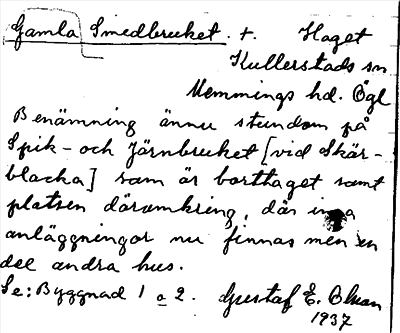 Gamla Smedbruket. t. Haget
Kullerstads sn
Memmings hd. Ögl
Benämning ännu stundom på
Spik- och Järnbruket [vid Skär-
blacka] som är borttaget samt
platsen däromkring, där inga
anläggningar nu finnas men en
del andra hus.
Se: Byggnad 1 o 2. Gustaf E. Bluan
1937